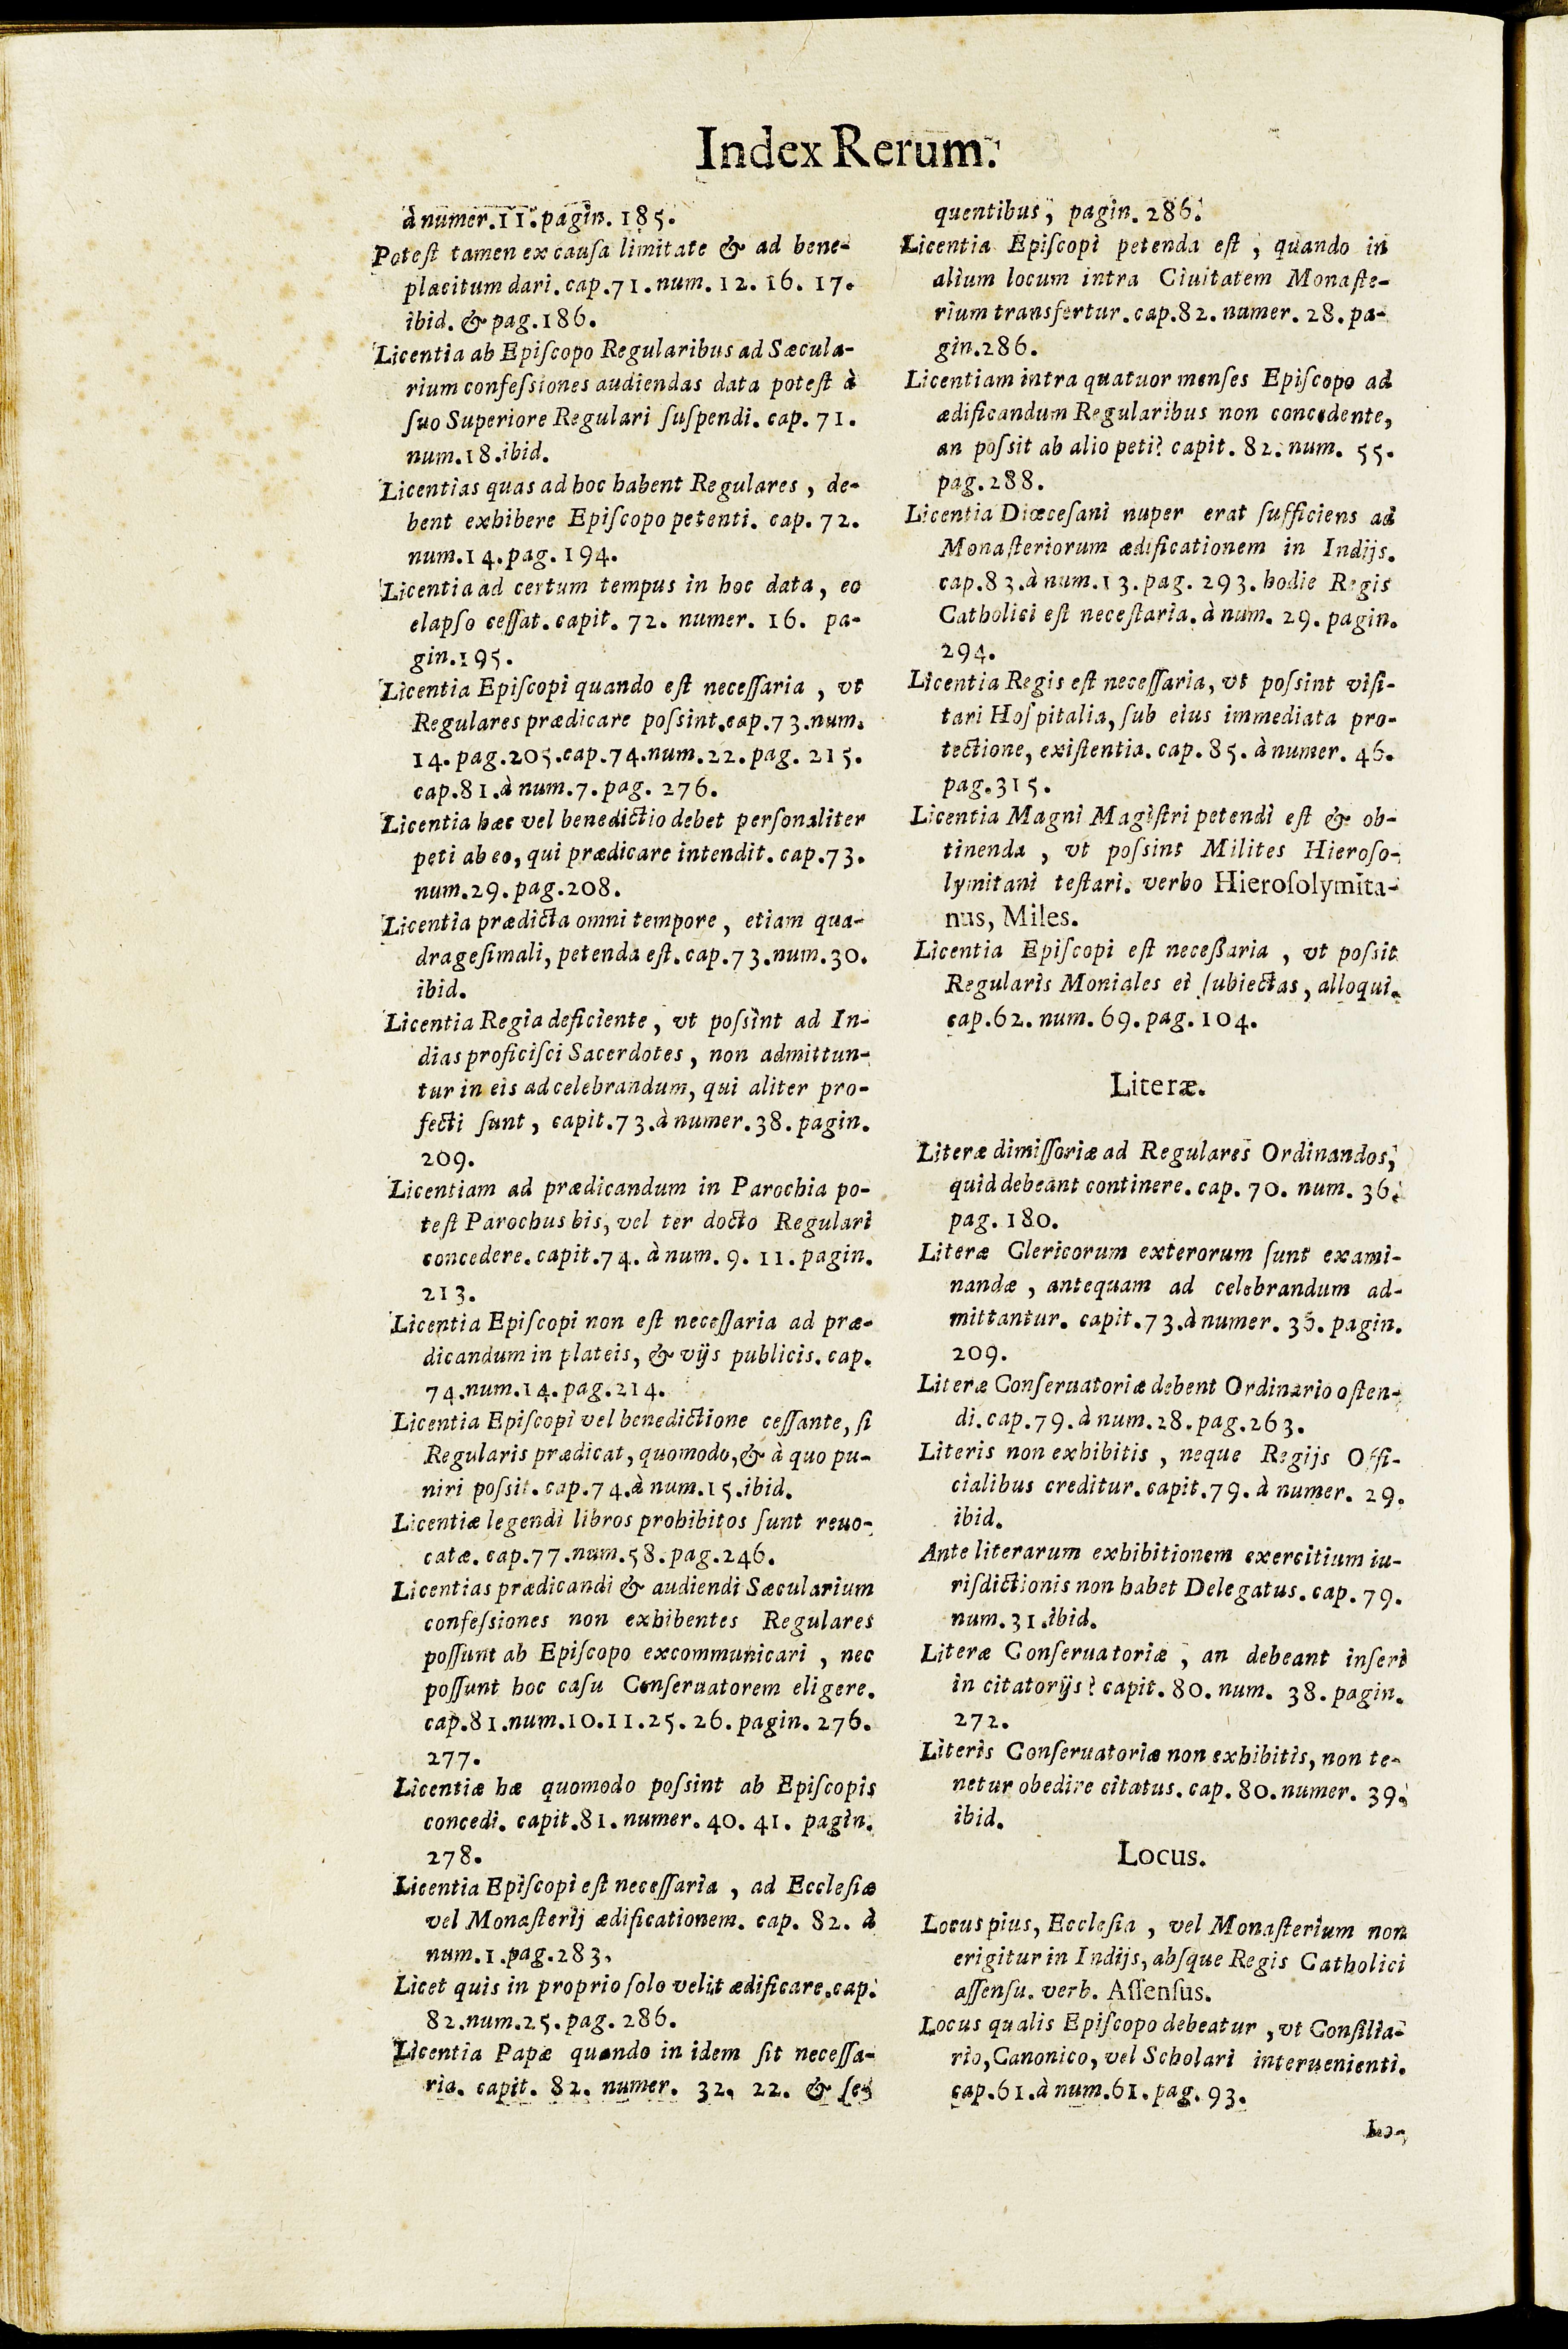 Index Rerum.
à numer. 11. pagin. 185.
Potest tamen ex causa limitate & ad bene-
placitum dari. cap. 71. num. 12. 16. 17.
ibid. & pag. 186.
Licentia ab Episcopo Regularibus ad Sæcula-
rium confessiones audiendas data potest à
suo Superiore Regulari suspendi. cap. 71.
num. 18. ibid.
Licentias quas ad hoc habent Regulares, de-
bent exhibere Episcopo petenti. cap. 72.
num. 14. pag. 194.
Licentia ad certum tempus in hoc data, eo
elapso cessat. capit. 72. numer. 16. pa-
gin. 195.
Licentia Episcopi quando est necessaria, vt
Regulares prædicare possint. cap. 73. num.
14. pag. 205. cap. 74. num. 22. pag. 215.
cap. 81. à num. 7. pag. 276.
Licentia hæc vel benedictio debet personaliter
peti ab eo, qui prædicare intendit. cap. 73.
num. 29. pag. 208.
Licentia prædicta omni tempore, etiam qua-
dragesimali, petenda est. cap. 73. num. 30.
ibid.
Licentia Regia deficiente, vt possint ad In-
dias proficisci Sacerdotes, non admittun-
tur in eis ad celebrandum, qui aliter pro-
fecti sunt, capit. 73. à numer. 38. pagin.
209.
Licentiam ad prædicandum in Parochia po-
test Parochus bis, vel ter docto Regulari
concedere. capit. 74. à num. 9. 11. pagin.
213.
Licentia Episcopi non est necessaria ad præ-
dicandum in plateis, & vijs publicis. cap.
74. num. 14. pag. 214.
Licentia Episcopi vel benedictione cessante, si
Regularis prædicat, quomodo, & à quo pu-
niri possit. cap. 74. à num. 15. ibid.
Licentiæ legendi libros prohibitos sunt reuo-
catæ. cap. 77. num. 58. pag. 246.
Licentias prædicandi & audiendi Sæcularium
confessiones non exhibentes Regulares
possunt ab Episcopo excommunicari, nec
possunt hoc casu Conseruatorem eligere.
cap. 81. num. 10. 11. 25. 26. pagin. 276.
277.
Licentiæ hæ quomodo possint ab Episcopis
concedi. capit. 81. numer. 40. 41. pagin.
278.
Licentia Episcopi est necessaria, ad Ecclesiæ
vel Monasterij ædificationem. cap. 82. à
num. 1. pag. 283.
Licet quis in proprio solo velit ædificare. cap.
82. num. 25. pag. 286.
Licentia Papæ quando in idem sit necessa-
ria. capit. 82. numer. 32. 22. & se-
quentibus, pagin. 286.
Licentia Episcopi petenda est, quando in
alium locum intra Ciuitatem Monaste-
rium transfertur. cap. 82. numer. 28. pa-
gin. 286.
Licentiam intra quatuor menses Episcopo ad
ædificandum Regularibus non concedente,
an possit ab alio peti? capit. 82. num. 55.
pag. 288.
Licentia Diœcesani nuper erat sufficiens ad
Monasteriorum ædificationem in Indijs.
cap. 83. à num. 13. pag. 293. hodie Regis
Catholici est necestaria. à num. 29. pagin.
294.
Licentia Regis est necessaria, vt possint visi-
tari Hospitalia, sub eius immediata pro-
tectione, existentia. cap. 85. à numer. 46.
pag. 315.
Licentia Magni Magistri petendi est & ob-
tinenda, vt possint Milites Hieroso-
lymitani testari. verbo Hierosolymita-
nus, Miles.
Licentia Episcopi est necessaria, vt possit
Regularis Moniales ei subiectas, alloqui.
cap. 62. num. 69. pag. 104.
Literæ.
Literæ dimissoriæ ad Regulares Ordinandos,
quid debeant continere. cap. 70. num. 36.
pag. 180.
Literæ Clericorum exterorum sunt exami-
nandæ, antequam ad celebrandum ad-
mittantur. capit. 73. à numer. 36. pagin.
209.
Literæ Conseruatoriæ debent Ordinario osten-
di. cap. 79. à num. 28. pag. 263.
Literis non exhibitis, neque Regijs Offi-
cialibus creditur. capit. 79. à numer. 29.
ibid.
Ante literarum exhibitionem exercitium iu-
risdictionis non habet Delegatus. cap. 79.
num. 31. ibid.
Literæ Conseruatoriæ, an debeant inseri
in citatorijs? capit. 80. num. 38. pagin.
272.
Literis Conseruatoriæ non exhibitis, non te-
netur obedire citatus. cap. 80. numer. 39.
ibid.
Locus.
Locus pius, Ecclesia, vel Monasterium non
erigitur in Indijs, absque Regis Catholici
assensu. verb. Assensus.
Locus qualis Episcopo debeatur, vt Consilia-
rio, Canonico, vel Scholari interuenienti.
cap. 61. à num. 61. pag. 93.
Lo-